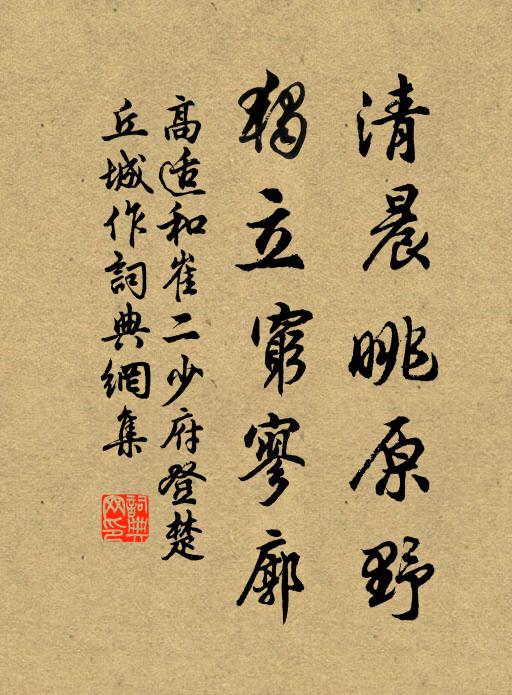 清晨眺原野
獨立窮寥廓
高适和崔二少府登楚
丘城作詞典網集
詞典網印